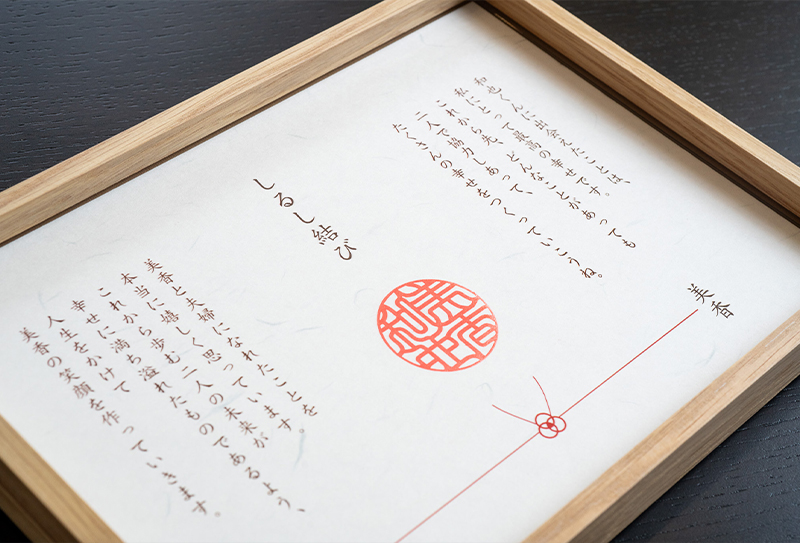 和也くんに出会えたことは、
私にとって最高の幸せです。
これから先、どんなことがあっても
二人で協力しあって、
たくさんの幸せをつくっていこうね。
美香
しるし結び
美香と夫婦になれたことを
本当に嬉しく思っています。
これから歩む二人の未来が
幸せに満ち溢れたものであるよう、
人生をかけて
美香の笑顔を作っていきます。